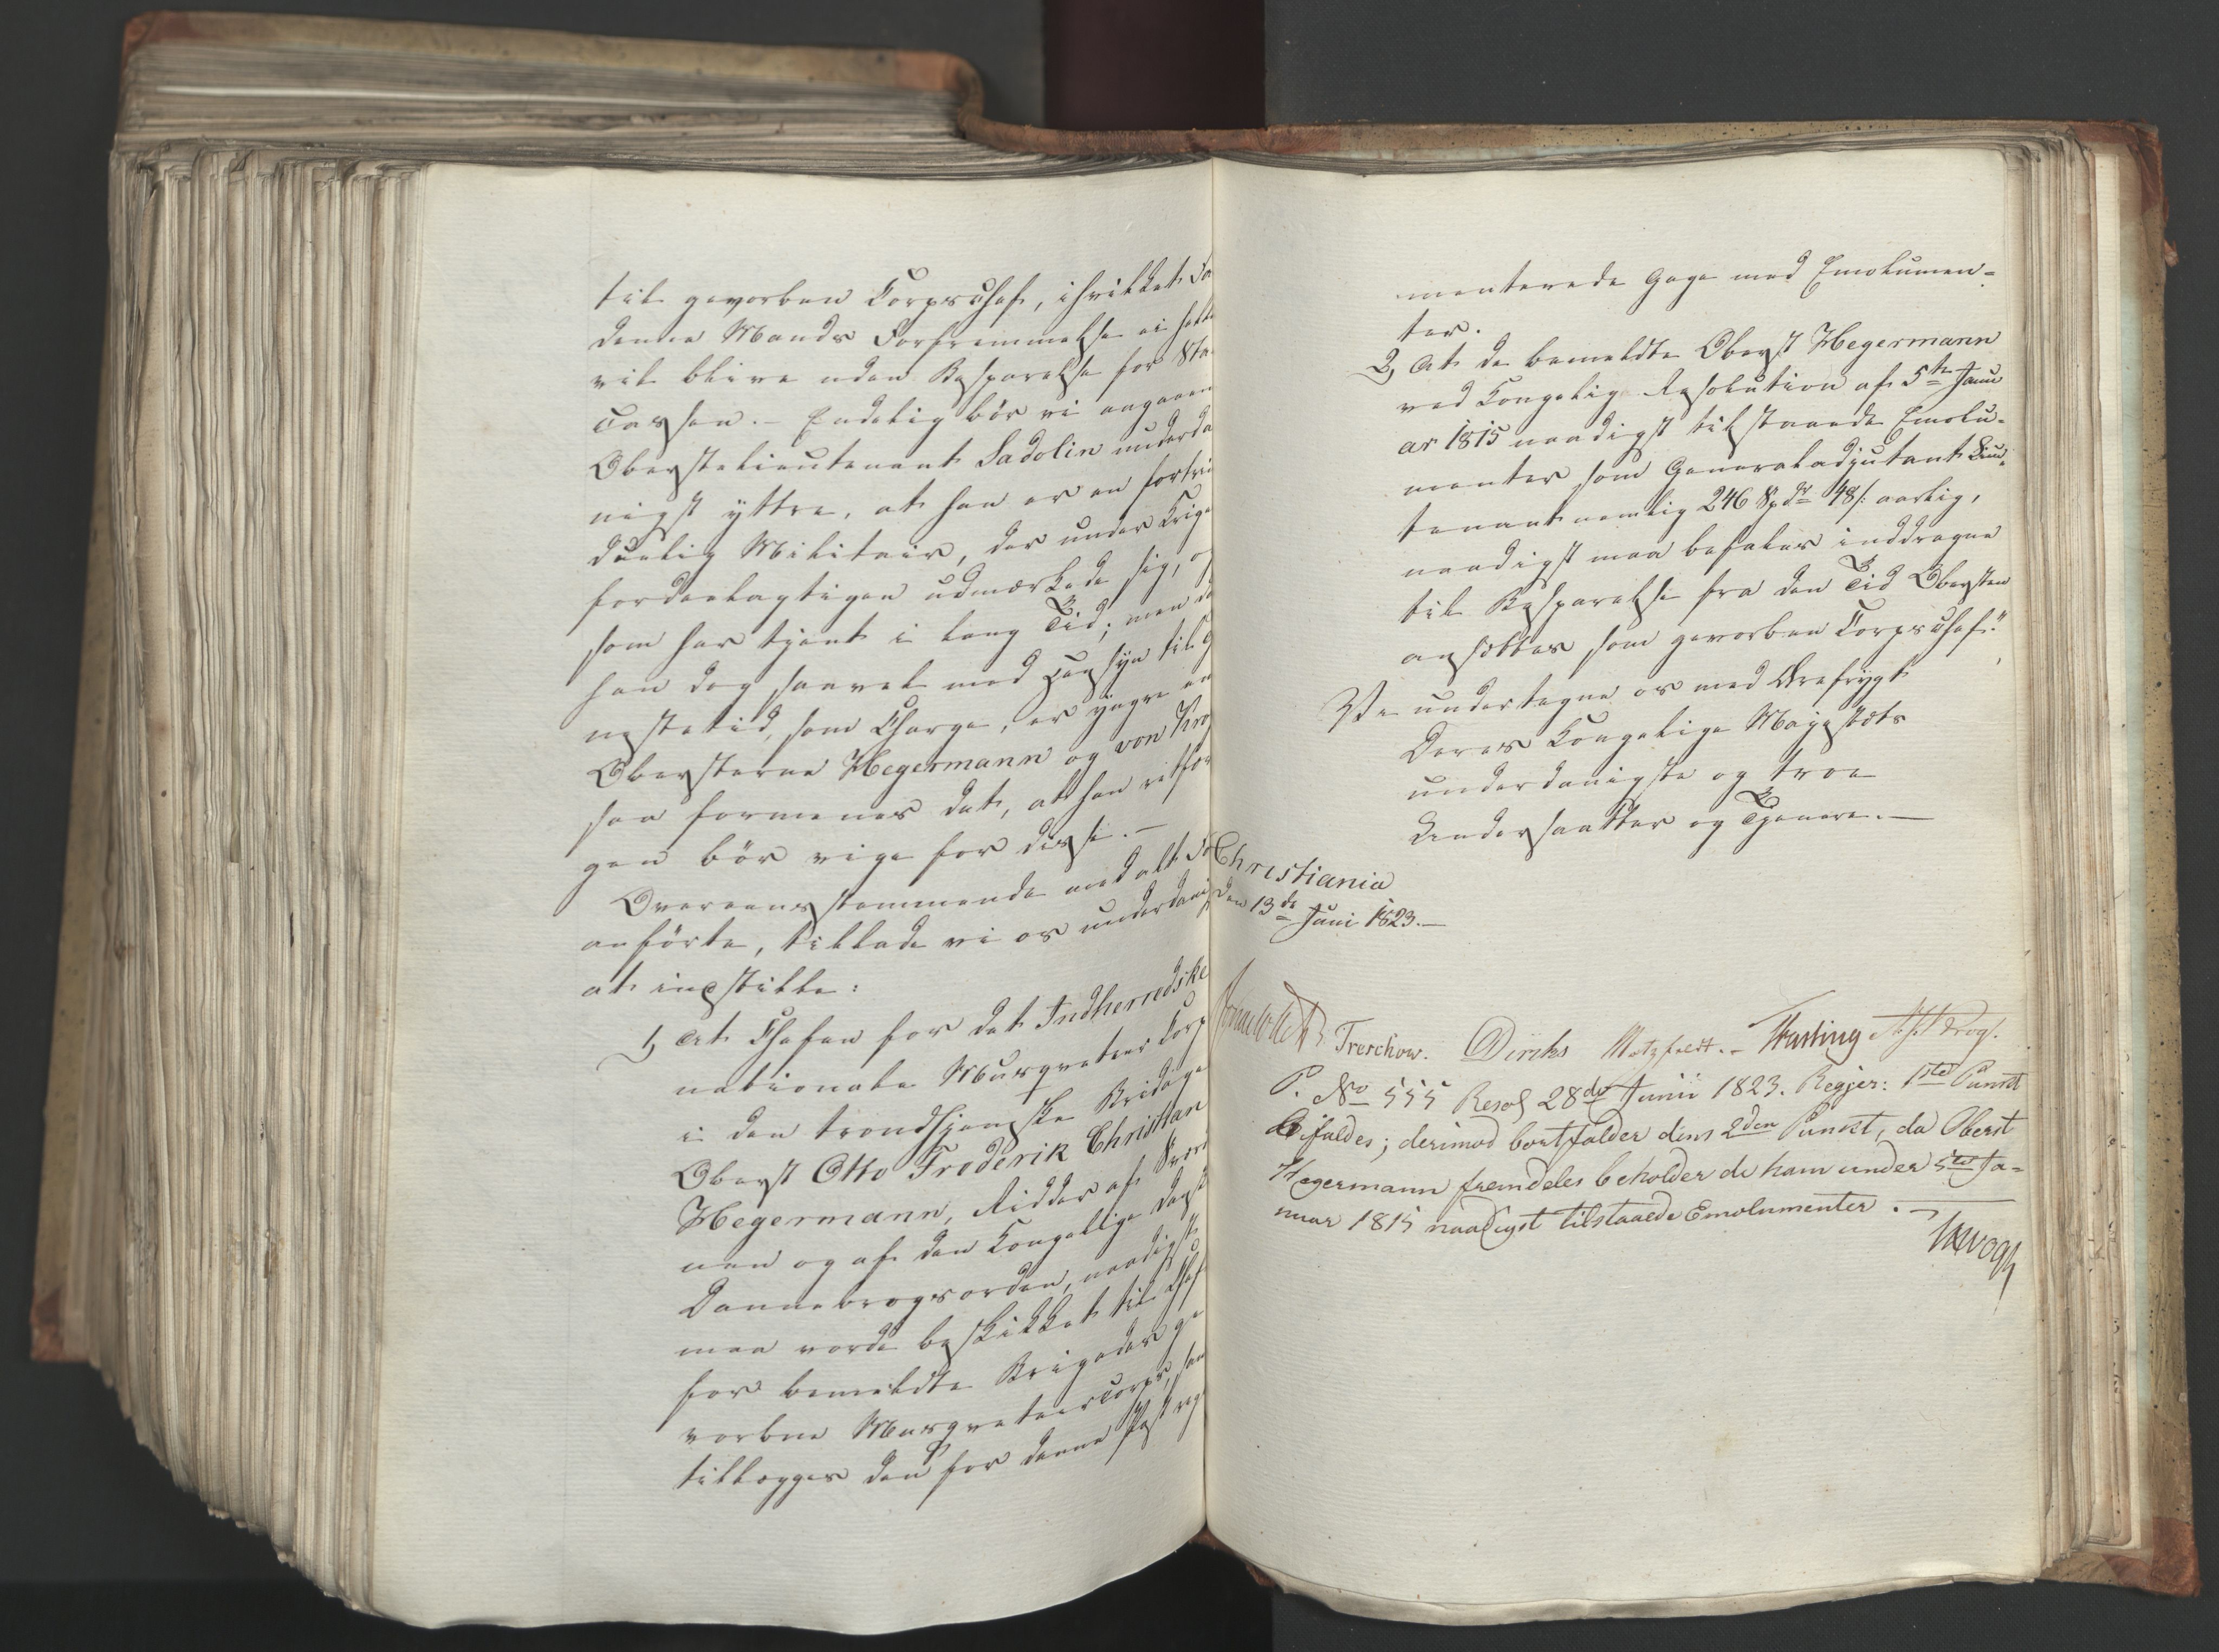 til gevorben Corpschef, i hvilket Fa
denne Mands Forfremmelse ei heller
vil blive uden Besparelse for Stats
Cassen. – Endelig bør vi angaaende
Oberstelieutenant Sadolin underda
nigst yttre, at han er en fortrin
duelig Militair, der under Krige
fordeelagtigen udmærkede sig, og
som har tjent i lang Tid; men da
han dog saavel med Hensyn til Tje
nestetid, som Charge, er yngre end
Obersterne Hegermann og von Kro
saa formenes det, at han
gen bør vige for disse. –
Overeensstemmende med alt Fo
anførte, tillade vi os underdanigst
at indstille:
1, At Chefen for det Indherredske
nationale Musqueteer Corps
i den trondhjemske Bridage
Oberst Otto Frederik Christian
Hegermann, Ridder af Sværd
nen og af den Kongellige danske
Dannebrogsorden, naadigst
maa vorde beskikket til Chef
for bemeldte Brigades ge
vorbne Musqueteercorps, samt
tillægges den for denne Post reg
menterede Gage med Emolumen-
ter.
2, At de bemeldte Oberst Hegermann
ved Kongelig Resolution af 5te Janu
ar 1815 naadigst tilstaaede Emolu-
menter som Generaladjutant Lieu-
tenant nemlig 246 Spdr 48 s. aarlig,
naadigst maa befales inddragne
til Besparelse fra den Tid Obersten
ansættes som gevorben Corpschef."
Vi undertegne os med Ærefrygt
Deres Kongelige Majestæts
underdanigste og troe
Undersaatter og Tjenere. –
Christiania
den 13de Juni 1823. –
Treschow. Diriks Motzfeldt. – Fasting
P. No 555 Resol 28de Junii 1823. Regjer: 1ste Punct
bifaldes; derimod bortfalder dens 2den Punkt, da Oberst
Hegermann fremdeles beholder de ham under 5te Ja-
nuar 1815 naadigst tilstaaede Emolumenter. –